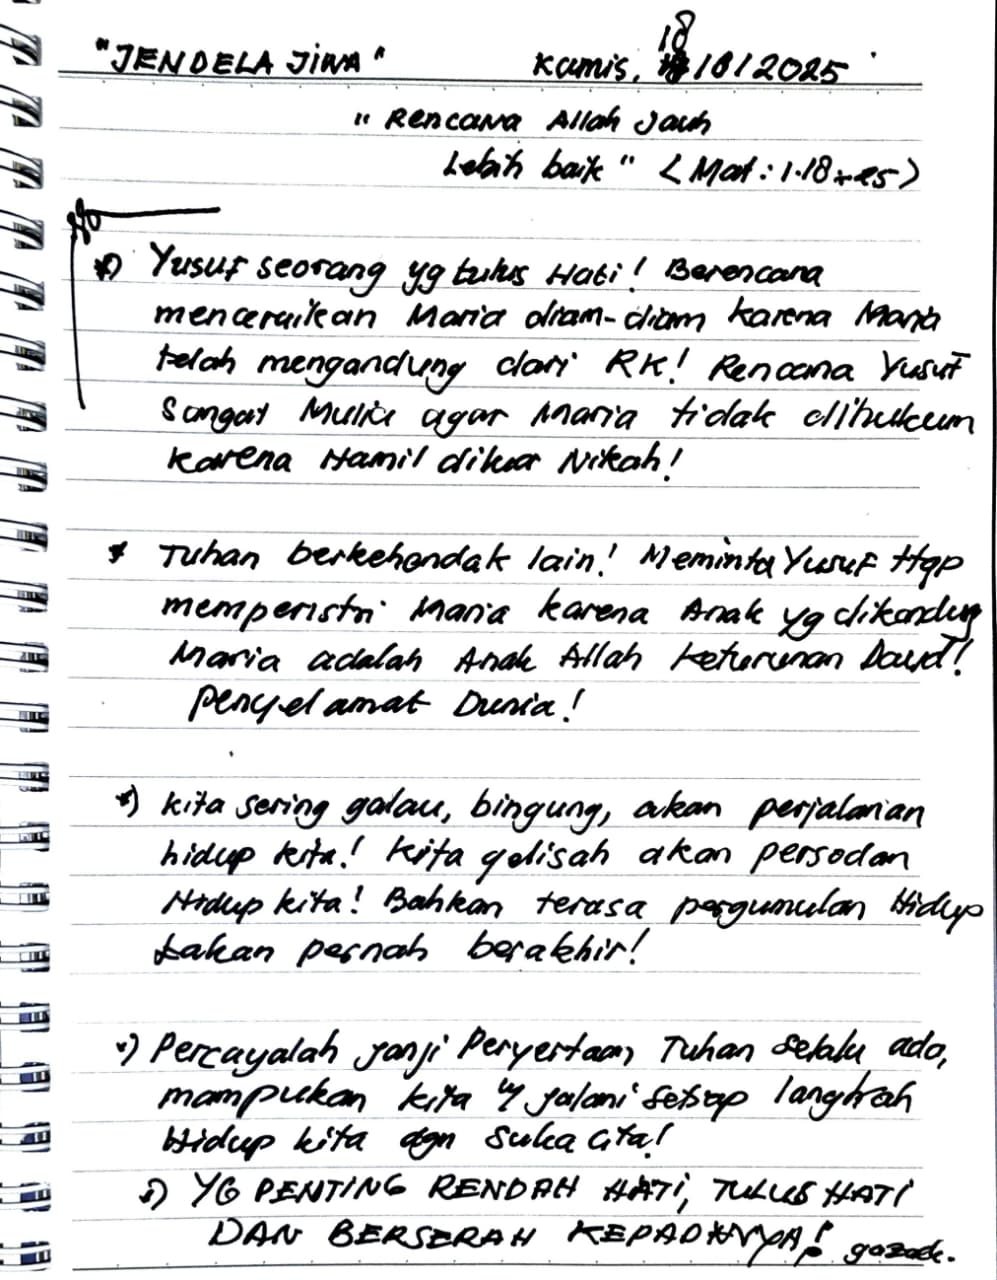 "JENDELA JIWA" Kamis, 18/10/2025
"Rencana Allah Jauh
Lebih baik" (Mat: 1.18-25)
*) Yusuf seorang yg tulus Hati! Berencana
menceraikan Maria diam-diam karena Maria
telah mengandung dari RK! Rencana Yusuf
Sangat Mulia agar Maria tidak dihukum
karena Hamil diluar Nikah!
* Tuhan berkehendak lain! Meminta Yusuf
memperistri Maria karena Anak yg dikandung
Maria adalah Anak Allah keturunan Daud!
Penyelamat Dunia!
*) kita sering galau, bingung, akan perjalanan
hidup kita! kita gelisah akan persoalan
Hidup kita! Bahkan terasa pergumulan Hidup
takan pernah berakhir!
*) Percayalah janji Penyertaan Tuhan selalu ada,
mampukan kita jalani setiap langkah
Hidup kita dgn Suka cita!
*) YG PENTING RENDAH HATI, TULUS HATI
DAN BERSERAH KEPADANYA!